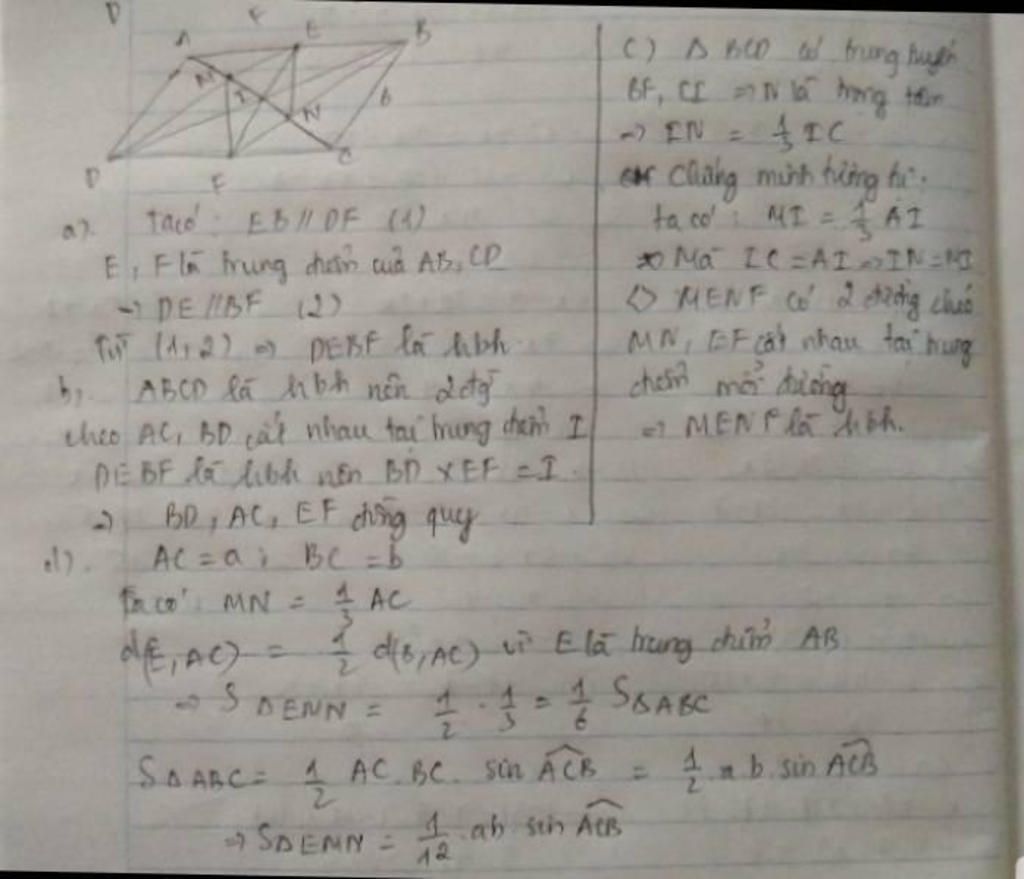 D F
A E B
M I N b
D F C
a). Ta có: EB // DF (1)
E, F là trung điểm của AB, CD
→ DE // BF (2)
Từ (1,2) ⇒ DEBF là hbh
b). ABCD là hbh nên 2 đg
chéo AC, BD cắt nhau tại trung điểm I
DEBF là hbh nên BD x EF = I
⇒ BD, AC, EF đồng quy
c) Δ BCD có trung tuyến
BF, CI ⇒ N là trọng tâm
⇒ IN = 1/3 IC
Chứng minh tương tự.
ta có: MI = 1/3 AI
Mà IC = AI ⇒ IN = MI
MENF có 2 đường chéo
MN, EF cắt nhau tại trung
điểm mỗi đường
⇒ MENF là hbh.
d). AC = a ; BC = b
Ta có: MN = 1/3 AC
d(E, AC) = 1/2 d(B, AC) vì E là trung điểm AB
⇒ S ΔEMN = 1/2 . 1/3 = 1/6 SΔABC
SΔABC = 1/2 AC. BC. sin ACB = 1/2 a b. sin ACB
⇒ SΔEMN = 1/12 . ab sin ACB